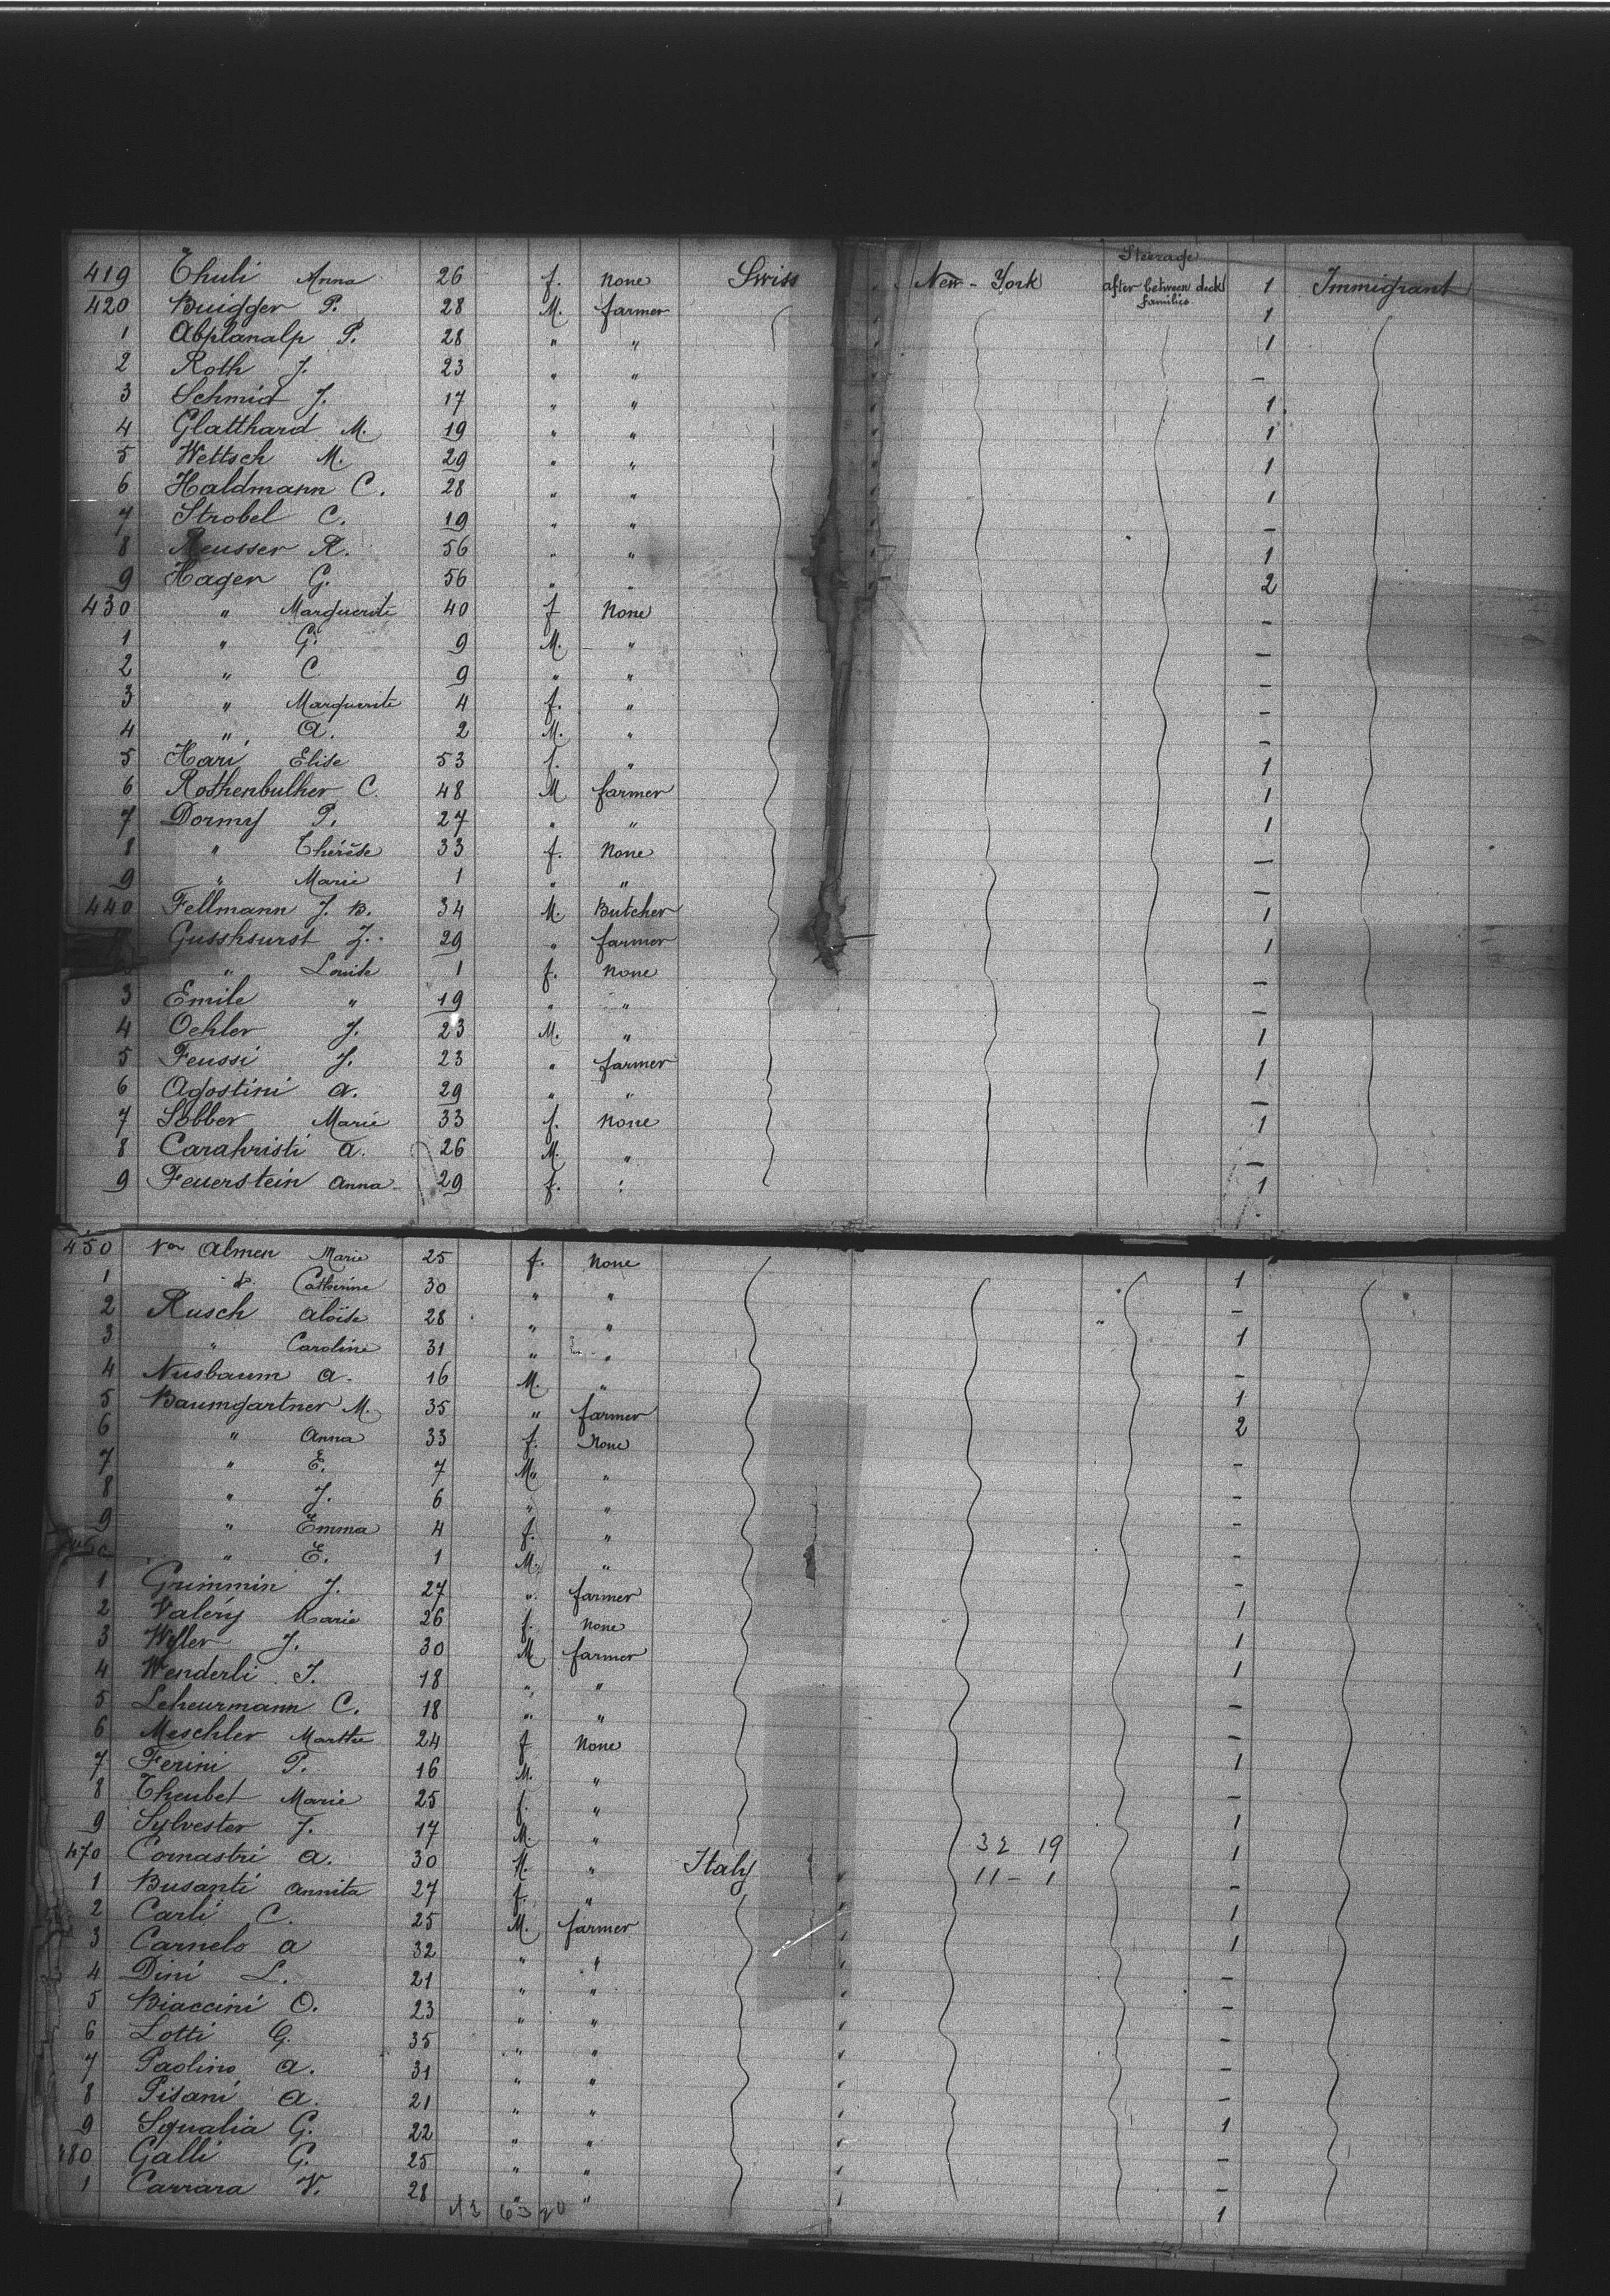 Steerage
419 Thuli Anna 26 f. none Swiss New-York after between deck families 1 Immigrant
420 Buigger P. 28 M. farmer 1
1 Abplanalp P. 28 " " 1
2 Roth J. 23 " " —
3 Schmid J. 17 " " 1
4 Glatthard M. 19 " " 1
5 Wettsch M. 29 " " 1
6 Haldmann C. 28 " " 1
7 Strobel C. 19 " " —
8 Reusser R. 56 " " 1
9 Hagen G. 56 " " 2
430 " Marguerite 40 f None —
1 " G. 9 M. " —
2 " C 9 " " —
3 " Marguerite 4 f. " —
4 " A. 2 M. " —
5 Hari Elise 53 f. " 1
6 Rothenbulher C. 48 M farmer 1
7 Dormy P. 27 " " 1
8 " Thérèse 33 f. None —
9 " Marie 1 " " —
440 Fellmann J. B. 34 M. Butcher 1
Gusshsurst J. 29 " farmer 1
" Louise 1 f. none —
3 Emile " 19 " " —
4 Oehler J. 23 M. " 1
5 Feussi J. 23 " farmer 1
6 Agostini A. 29 " " —
7 Sobber Marie 33 f. none 1
8 Carahristi A. 26 M. " —
9 Feuerstein Anna 29 f. " 1
450 Von Almen Marie 25 f. None 1
1 do Catherine 30 " " —
2 Rusch Aloïse 28 " " 1
3 " Caroline 31 " " —
4 Nusbaum A. 16 M. " 1
5 Baumgartner M. 35 " farmer 2
6 " Anna 33 f. None —
7 " E. 7 M. " —
8 " J. 6 " " —
9 " Emma 4 f. " —
" E. 1 M. " —
1 Grimmin J. 27 " farmer 1
2 Valéry Marie 26 f. none 1
3 Wyler J. 30 M farmer 1
4 Wenderli J. 18 " " —
5 Leheurmann C. 18 " " —
6 Meschler Marthe 24 f None 1
7 Ferini P. 16 M. " —
8 Theubet Marie 25 f. " 1
9 Sylvester J. 17 M. " 32 19 1
470 Cornastri A. 30 M. " Italy 11 - 1 —
1 Busanti Annita 27 f. " 1
2 Carli C. 25 M. farmer 1
3 Carnelo A 32 " " —
4 Dini L. 21 " " —
5 Biaccini O. 23 " " —
6 Lotti G. 35 " " —
7 Paolino A. 31 " " —
8 Pisani A. 21 " " 1
9 Squalia G. 22 " " —
480 Galli G. 25 " " —
1 Carrara V. 28 " " 1